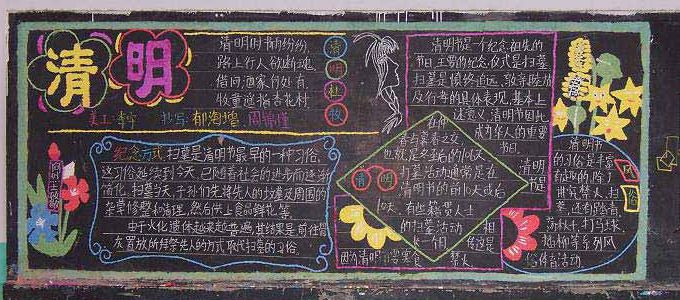 清明
清明时节雨纷纷,
路上行人欲断魂,
借问酒家何处有,
牧童遥指杏花村
清
明
杜
牧
美工:李宁
抄写:郁海鸿 周锦瑾
纪念方式:扫墓是清明节最早的一种习俗,
这习俗延续到今天,已随着社会的进步而逐渐
简化,扫墓当天,子孙们先将先人的坟墓及周围的
杂草修整和清理,然后供上食品鲜花等,
由于火化遗体越来越普遍,其结果是前往骨
灰置放地拜祭先人的方式取代扫墓的习俗.
清明节是一个纪念祖先的
节日,主要的纪念仪式是扫墓,
扫墓是慎终追远、敦亲睦族
及行孝的具体表现,基本上
述意义,清明节因此
成为华人的重要
节日.
清明
春与暮春之交,
也就是冬至后的106天,
扫墓活动通常是在
清明节的前10天或后
10天,有些籍贯人士
的扫墓活动
长一个月.
清明节
的习俗是丰富
有趣的,除了
讲究禁火、扫
墓,还有踏青、
荡秋千、打马球、
插柳等系列风
俗体育活动.
风
俗